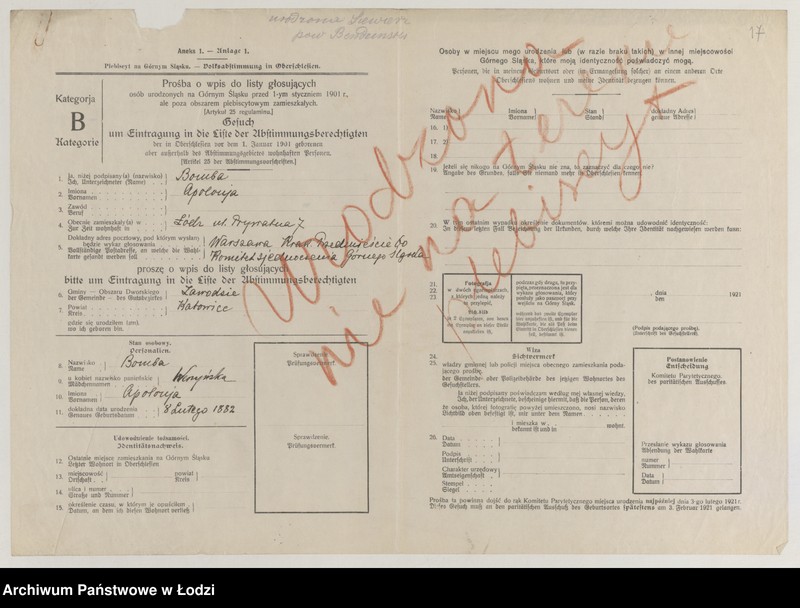 urodzona
17
Aneks 1. — Anlage 1.
Plebiscyt na Górnym Śląsku. — Volksabstimmung in Oberschlesien.
Kategorja
B
Kategorie
Prośba o wpis do listy głosujących
osób urodzonych na Górnym Śląsku przed 1-ym styczniem 1901 r.,
ale poza obszarem plebiscytowym zamieszkałych.
[Artykuł 25 regulaminu.]
Gesuch
um Eintragung in die Liste der Abstimmungsberechtigten
der in Oberschlesien vor dem 1. Januar 1901 geborenen
aber außerhalb des Abstimmungsgebietes wohnhaften Personen.
[Artikel 25 der Abstimmungsvorschriften.]
1. Ja, niżej podpisany(a) (nazwisko) Bomba
Ich, Unterzeichneter (Name)
2. Imiona Apolonja
Vornamen
3. Zawód
Beruf
4. Obecnie zamieszkały(a) w Łódź ul. Prywatna 7
Zur Zeit wohnhaft in
5. Dokładny adres pocztowy, pod którym wysłany
będzie wykaz głosowania Warszawa Krak. Przedmieście 60
Vollständige Postadresse, an welche die Wahlkarte
gesandt werden soll Komitet zjednoczenia Górnego Śląska
proszę o wpis do listy głosujących
bitte um Eintragung in die Liste der Abstimmungsberechtigten
6. Gminy — Obszaru Dworskiego Zawodzie
der Gemeinde — des Gutsbezirkes
7. Powiat Katowice
Kreis
gdzie się urodziłem (am).
wo ich geboren bin.
Stan osobowy.
Personalien.
8. Nazwisko Bomba
Name
9. u kobiet nazwisko panieńskie
Mädchennamen
10. Imiona Apolonja
Vornamen
11. dokładna data urodzenia 8 Lutego 1882
Genaues Geburtsdatum
Sprawdzenie.
Prüfungsvermerk.
Udowodnienie tożsamości.
Identitätsnachweis.
12. Ostatnie miejsce zamieszkania na Górnym Śląsku
Letzter Wohnort in Oberschlesien
13. miejscowość powiat
Ortschaft Kreis
14. ulica i numer
Straße und Nummer
15. określenie czasu, w którym je opuściłam
Datum, an dem ich diesen Wohnort verließ
Sprawdzenie.
Prüfungsvermerk.
Osoby w miejscu mego urodzenia lub (w razie braku takich) w innej miejscowości
Górnego Śląska, które moją identyczność poświadczyć mogą.
Personen, die in meinem Geburtsort oder (in Ermangelung solcher) an einem anderen Orte
Oberschlesiens wohnen und meine Identität bezeugen können.
Nazwisko Imiona Stan dokładny Adres
Name Vorname Stand genauer Adresse
16. 1)
17. 2)
18. 3)
19. Jeżeli się nikogo na Górnym Śląsku nie zna, to zaznaczyć dlaczego nie?
Angabe des Grundes, falls Sie niemand mehr in Oberschlesien kennen.
20. W tym ostatnim wypadku określenie dokumentów, któremi można udowodnić identyczność:
In diesem letzten Fall Bezeichnung der Urkunden, durch welche Ihre Identität nachgewiesen werden kann:
Urodzona
nie na terenie
plebiscyt
21.
22.
23.
Fotografja
w dwóch egzemplarzach,
z których jedną należy
tu przylepić,
, dnia 1921
den
(Podpis podającego prośbę).
(Unterschrift des Gesuchstellers).
24. Wiza
Sichtvermerk
25. władzy gminnej lub policji miejsca obecnego zamieszkania podającego
prośbę.
der Gemeinde- oder Polizeibehörde des jetzigen Wohnortes des
Gesuchstellers.
Ja niżej podpisany poświadczam według mej własnej wiedzy,
Ich, der Unterzeichnete, bescheinige hiermit, daß die Person, deren
że osoba, której fotografję powyżej umieszczono, nosi nazwisko
Lichtbild oben befestigt ist, mir unter dem Namen
i mieszka w
bekannt ist und in wohnt.
26. Data
Datum
Podpis
Unterschrift
Charakter urzędowy
Amtseigenschaft
Stempel
Siegel
Postanowienie
Entscheidung
Komitetu Parytetycznego.
des paritätischen Ausschusses
Przesłanie wykazu głosowania
Absendung der Wahlkarte
numer
Nummer
Data
Datum
Prośba ta powinna dojść do rąk Komitetu Parytetycznego miejsca urodzenia najpóźniej dnia 3-go lutego 1921 r.
Dieses Gesuch muß an den paritätischen Ausschuß des Geburtsortes spätestens am 3. Februar 1921 gelangen.
Archiwum Państwowe w Łodzi